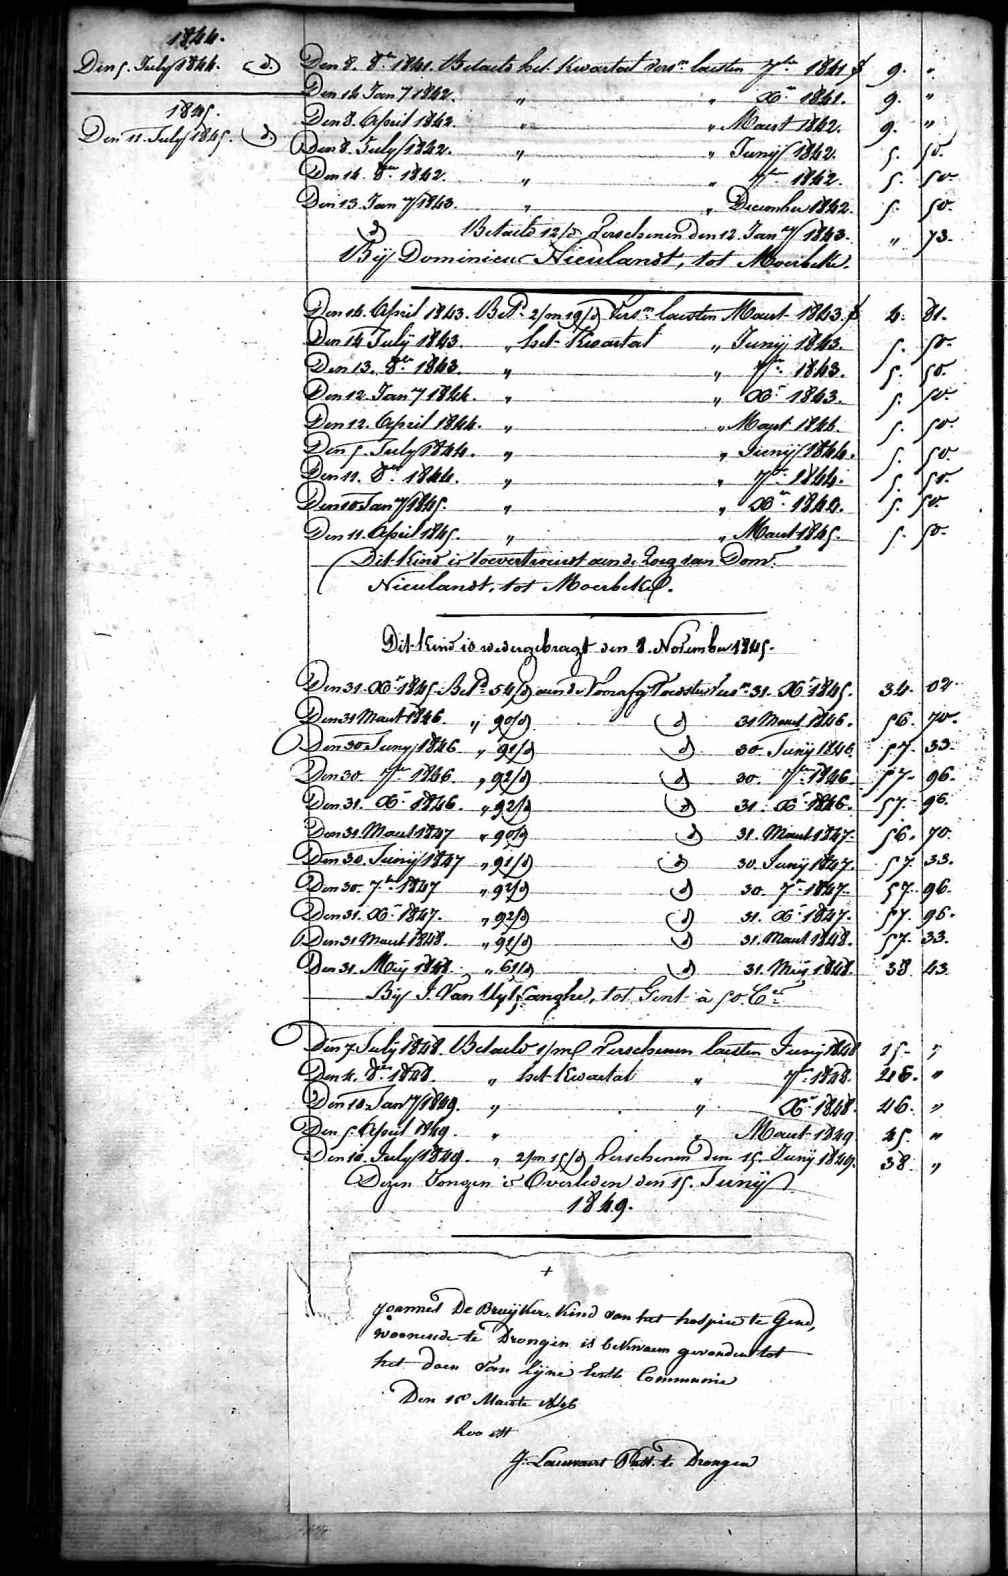 1844.
Den 5. July 1844. (d.)
1845.
Den 11. July 1845. (d.)
Den 8. 8er 1841. Betaelt het Kwartael vers.n laesten 7ber 1841 f 9. "
Den 14 Jan.y 1842. " " Xr 1841. 9. "
Den 8. April 1842. " " Maert 1842. 9. "
Den 8. July 1842. " " Junij 1842. 5. 50.
Den 14. 8er 1842. " " 7ber 1842. 5. 50.
Den 13. Jan.y 1843. " " December 1842. 5. 50.
(d) Betaelt 12/d Verschenen den 12. Jan.y 1843. " 73.
Bij Dominicus Nieulandt, tot Moerbeke.
Den 14. April 1843. Bet.d 2/m 19/d Vers.n laesten Maert 1843. f 4. 81.
Den 14 July 1843. " het Kwartael " Junij 1843. 5. 50.
Den 13. 8er 1843. " " 7ber 1843. 5. 50.
Den 12. Jan.y 1844. " " Xr 1843. 5. 50.
Den 12. April 1844. " " Maert 1844. 5. 50.
Den 5. July 1844. " " Junij 1844. 5. 50.
Den 11. 8er 1844. " " 7ber 1844. 5. 50.
Den 10 Jan.y 1845. " " Xr 1844. 5. 50.
Den 11. April 1845. " " Maert 1845. 5. 50.
Dit Kind is toevertrouwt aen de Zorg van Dom.
Nieulandt, tot Moerbeke.
Dit Kind is wedergebragt den 8. November 1845.
Den 31. Xr 1845. Bet.d 54/d aen de Voorsz. Voedster vers.n 31. Xr 1845. 34. 02.
Den 31 Maert 1846. " 90/d (d) 31 Maert 1846. 56. 70.
Den 30 Junij 1846. " 91/d (d) 30. Junij 1846 57. 33.
Den 30. 7ber 1846. " 92/d (d) 30. 7ber 1846. 57. 96.
Den 31. Xr 1846. " 92/d (d) 31. Xr 1846. 57. 96.
Den 31. Maert 1847 " 90/d (d) 31. Maert 1847. 56. 70.
Den 30. Junij 1847 " 91/d (d) 30. Junij 1847. 57. 33.
Den 30. 7br 1847 " 92/d (d) 30. 7br 1847. 57. 96.
Den 31. Xr 1847. " 92/d (d) 31. Xr 1847. 57. 96.
Den 31 Maert 1848. " 91/d (d) 31. Maert 1848. 57. 33.
Den 31. Meij 1848. " 61/d (d) 31. Meij 1848. 38 43.
Bij J. Van Uytvanghe, tot Gent à 50. C.en
Den 7 July 1848. Betaelt 1/m Verschenen laesten Junij 1848 15. "
Den 4. 8er 1848. " het Kwartael " 7br 1848. 46. "
Den 10 Jan.y 1849. " " Xr 1848. 46. "
Den 5. April 1849. " " Maert 1849 45. "
Den 10. July 1849. " 2/m 15/d Verschenen den 15. Junij 1849. 38. "
Dezen Jongen is Overleden den 15. Junij
1849.
+
Joannes De Bruijker. Kind van het hospice te Gend,
Woonende te Drongen is bekwaem gevonden tot
het doen van Zijne Eerste Communie
Den 15 Maerte 1846
J. Lauwaert Past. te Drongen